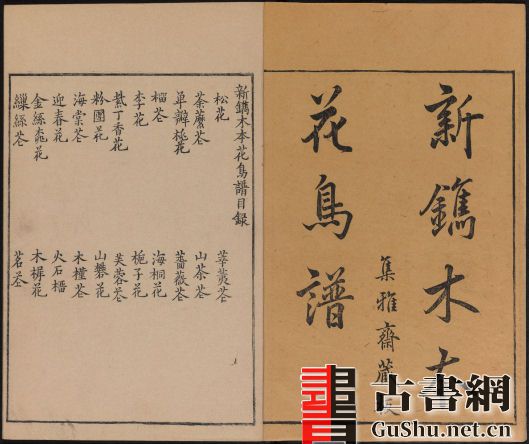 新鐫木本
花鳥譜
集雅齋藏
新鐫木本花鳥譜目錄
松花 莘荑花
荼蘼花 山茶花
單瓣桃花 薔薇花
榴花 海桐花
李花 梔子花
紫丁香花 芙蓉花
粉團花 山礬花
海棠花 木槿花
迎春花 火石榴
金絲桃花 木樨花
繅絲花 茗花
古書網
GuShu.net.cn